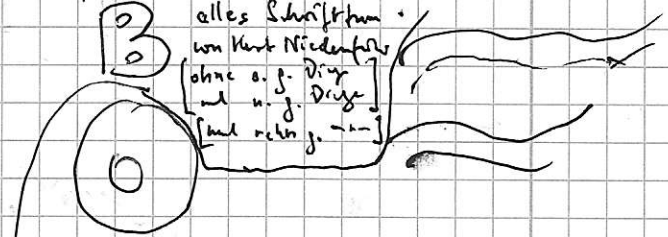 B
alles Schrifttum
von Kurt Niedenführ
[ohne o. g. Dinge
und u. g. Dinge]
[und g. ]